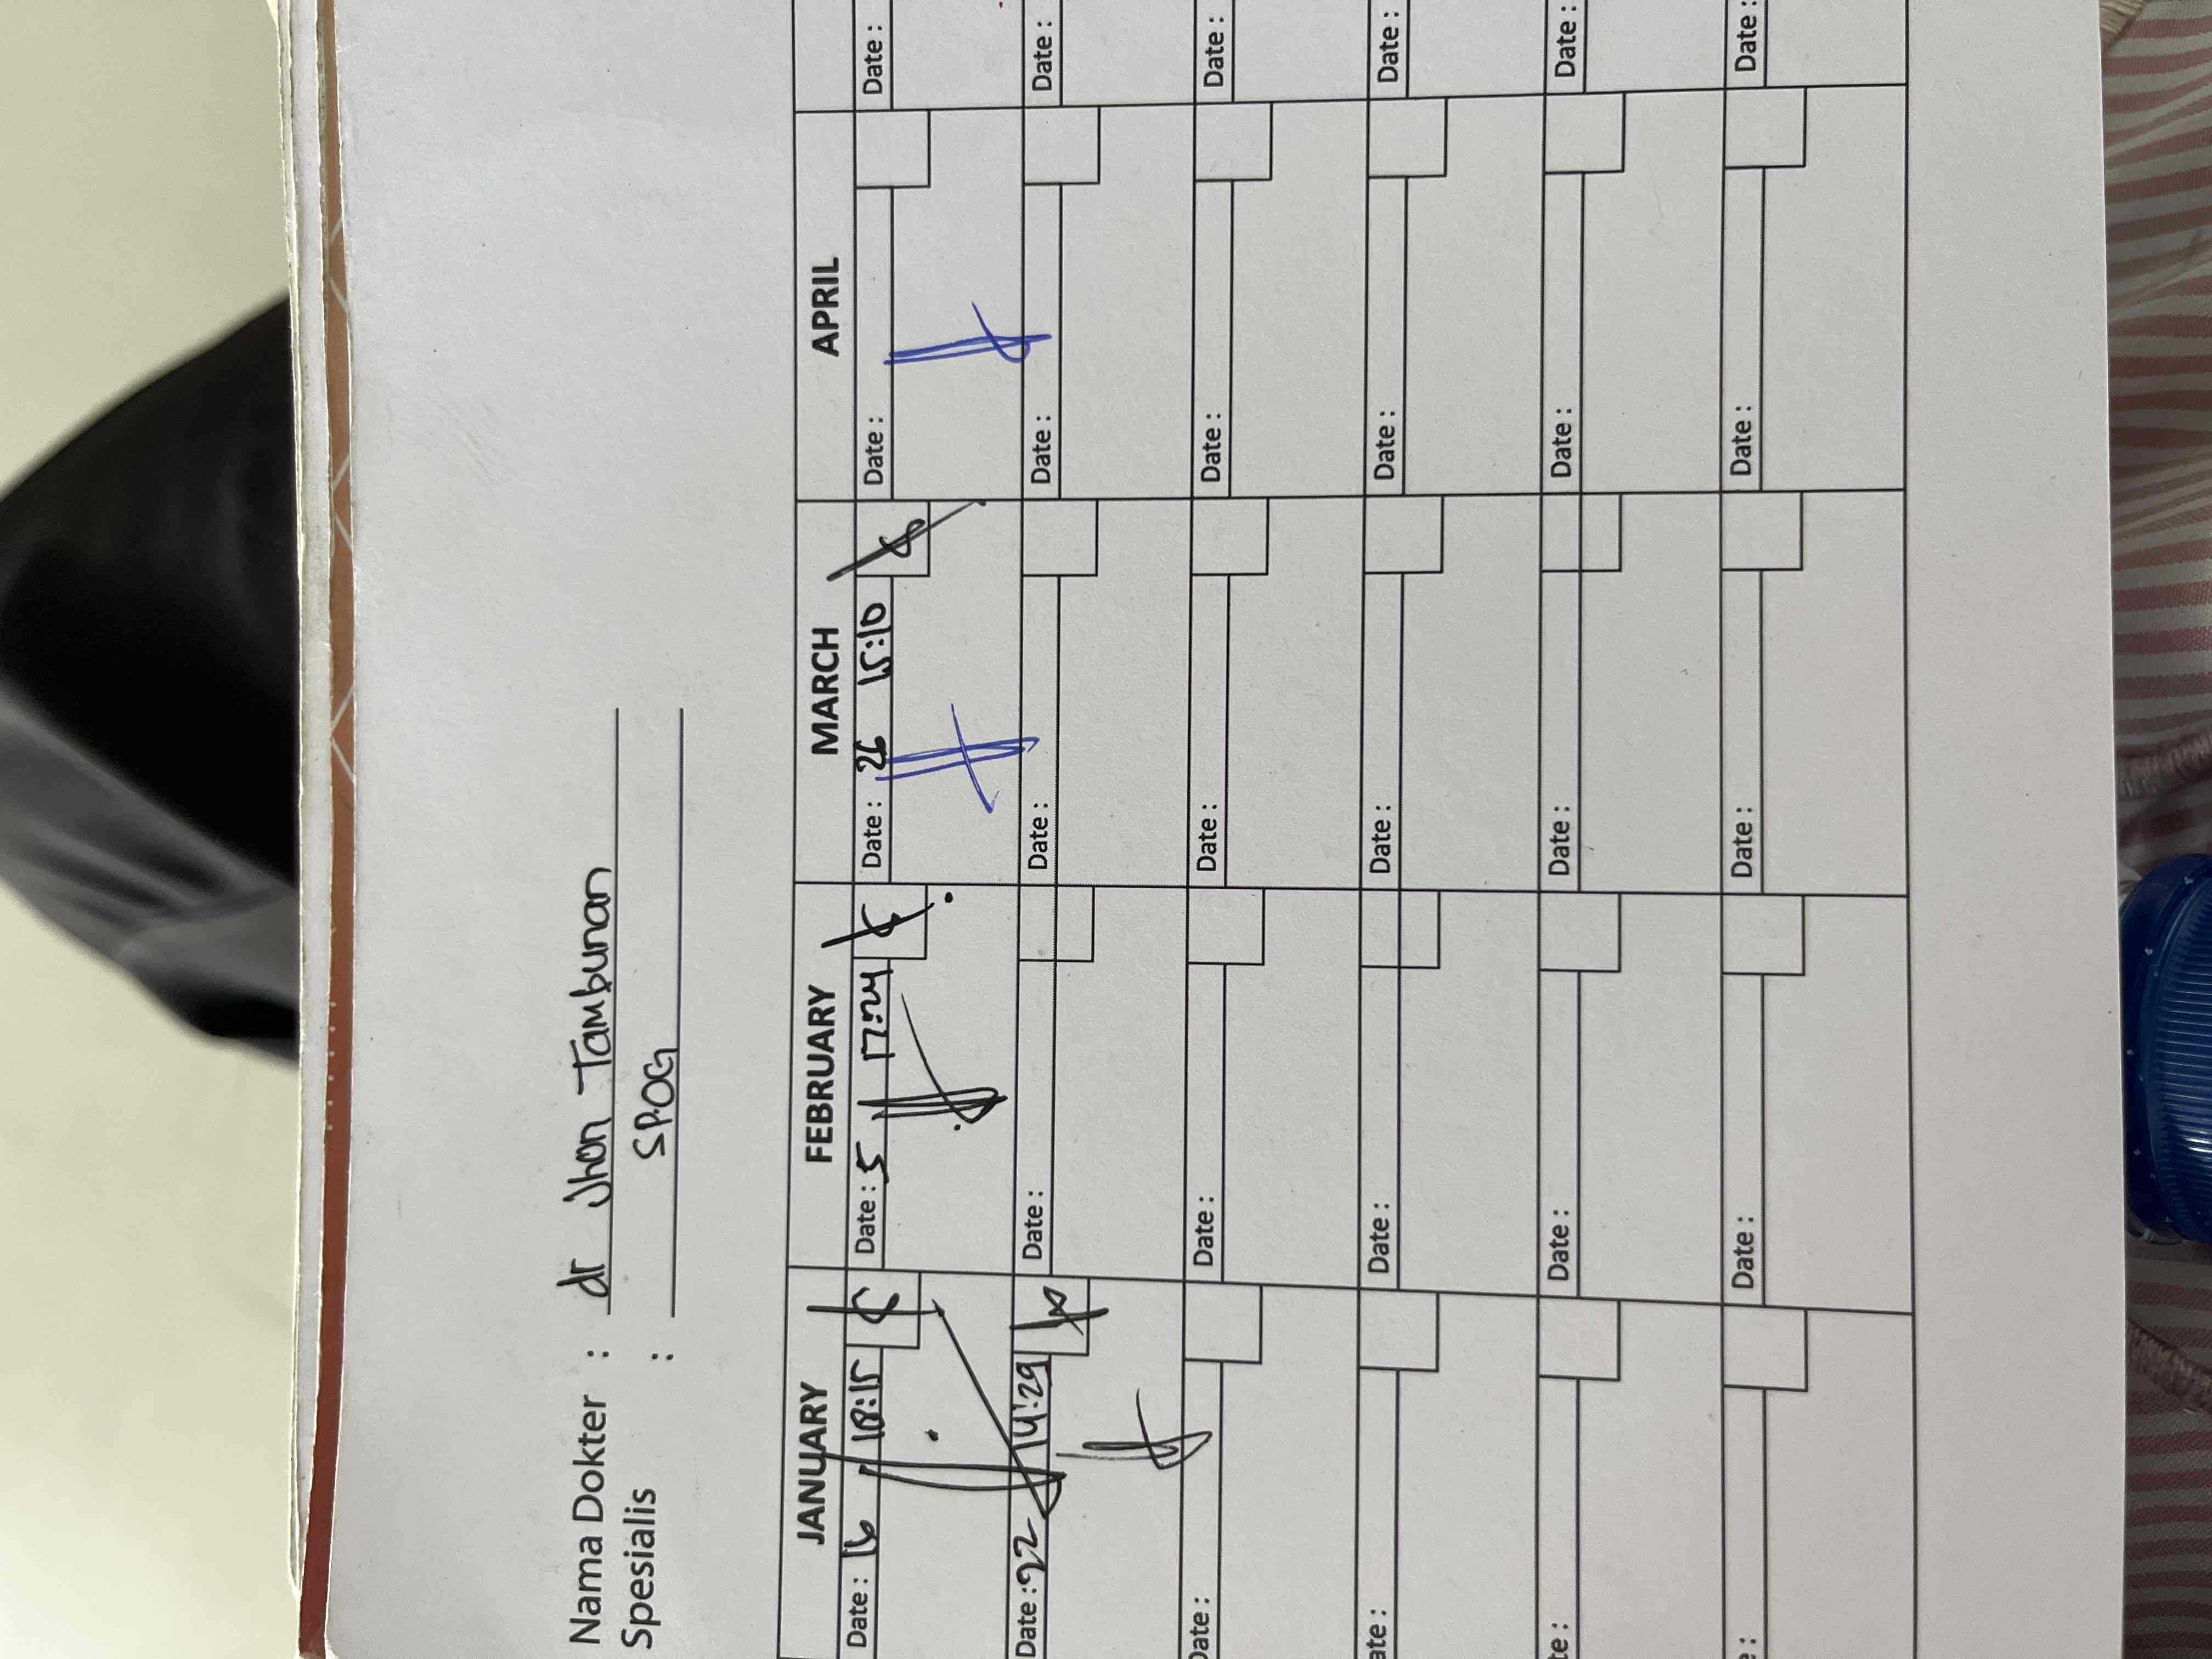 Nama Dokter : dr Jhon Tambunan
Spesialis : SPOG
JANUARY FEBRUARY MARCH APRIL
Date : 16 18:15 Date : 5 17:24 Date : 26 15:10 Date : Date :
Date : 22 14:29 Date : Date : Date : Date :
Date : Date : Date : Date : Date :
ate : Date : Date : Date : Date :
te : Date : Date : Date : Date :
e : Date : Date : Date : Date :